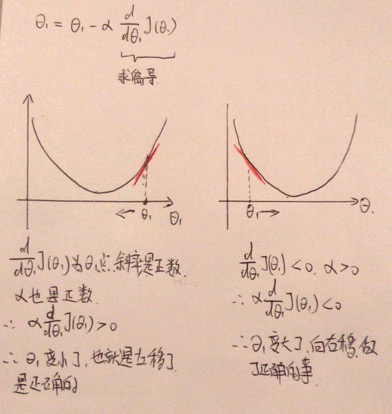 θ₁ = θ₁ - α d/dθ₁ J(θ₁)
求偏导
← θ₁ θ₁
θ₁ → θ.
d/dθ₁ J(θ₁)为θ₁点,斜率是正数.
α也是正数.
∴ α d/dθ₁ J(θ₁) > 0
∴ θ₁变小了,也就是左移了
是正确的
d/dθ₁ J(θ₁) < 0. α > 0
∴ α d/dθ₁ J(θ₁) < 0
∴ θ₁变大了,向右移.做
了正确的事.